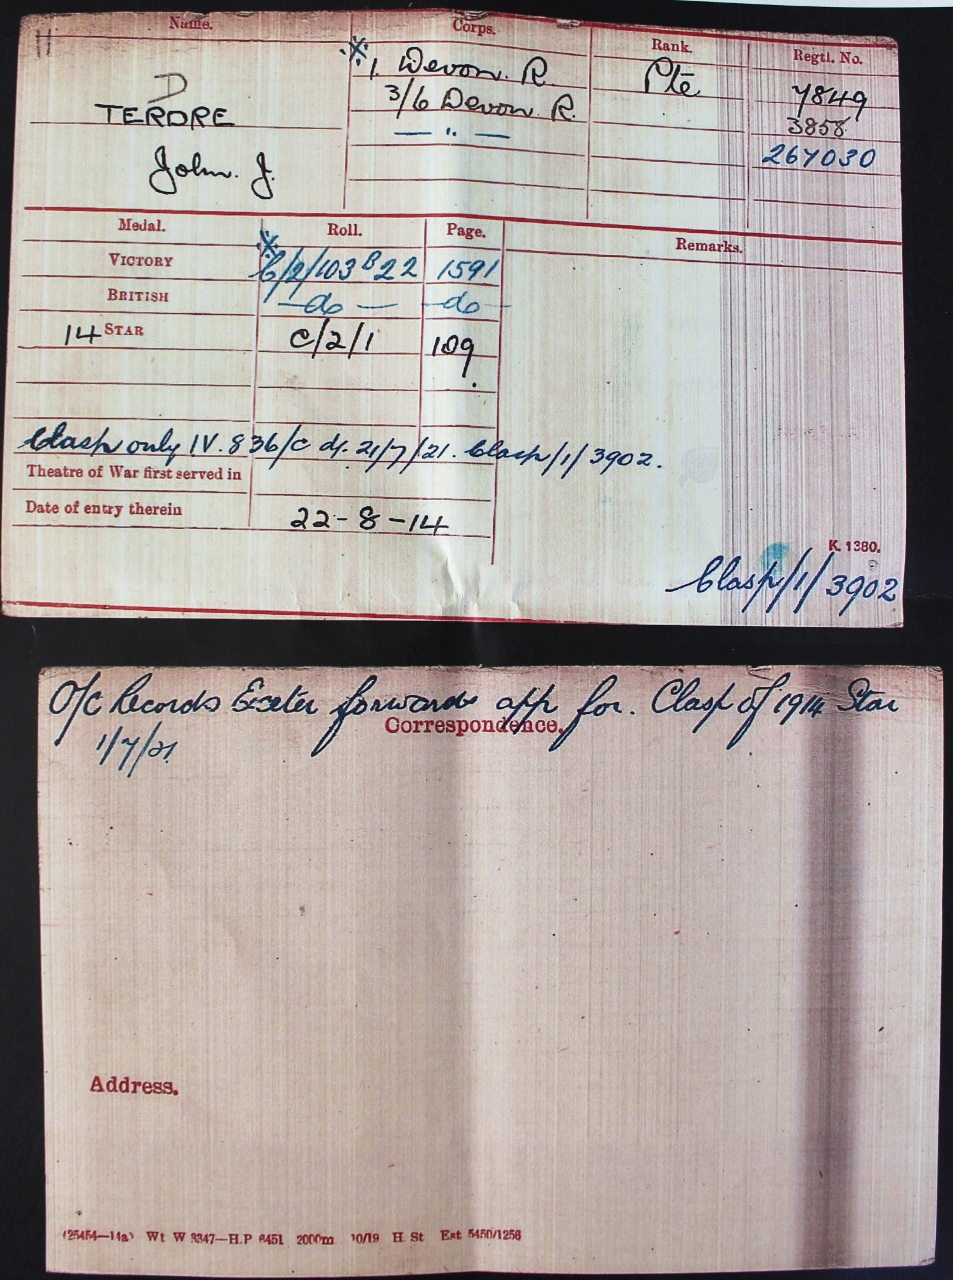 Name. Corps. Rank. Regtl. No.
D
TERDRE
John. J.
※ 1. Devon. R Pte 7849
3/6 Devon. R. 3858
— " — 267030
Medal. Roll. Page. Remarks.
VICTORY ※ C/2/103 B22 1591
BRITISH — do — — do —
14 STAR C/2/1 109.
Clasp only IV. 836/C d/. 21/7/21. Clasp/1/3902.
Theatre of War first served in
Date of entry therein 22-8-14
K. 1380.
Clasp/1/3902
O/C Records Exeter forwards app for. Clasp of 1914 Star
Correspondence.
1/7/21
Address.
(25454—14a) Wt W 3347—H.P 6451 2000m 10/19 H St Est 5450/1256